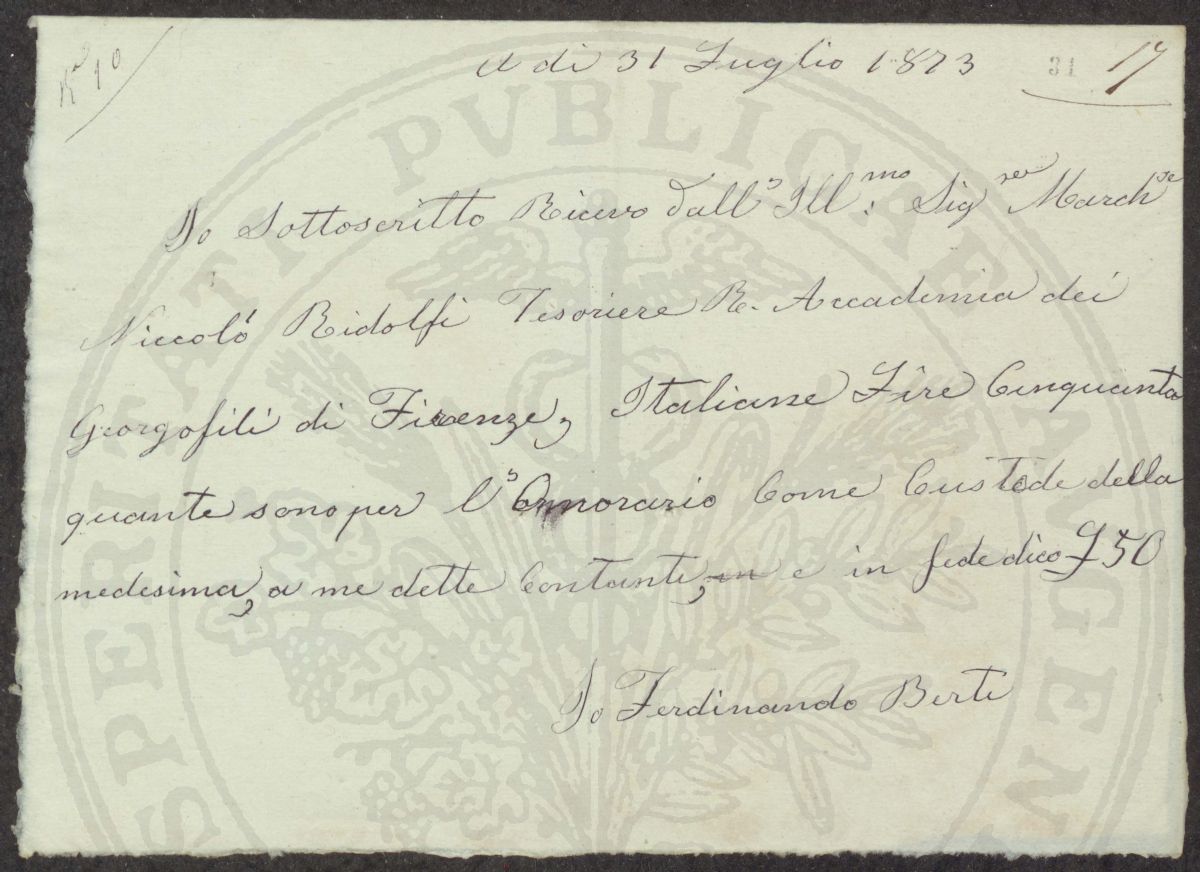 A di 31 Luglio 1873
31
17
Io Sottoscritto Ricevo dall' Ill:mo Sig.rer March.se
Niccoló Ridolfi Tesoriere R. Accademia dei
Georgofili di Firenze, Italiane Lire Cinquanta
quante sono per l'Onnorario Come Custode della
medesima, a me dette Contanti, e in fede dico £ 50
Io Ferdinando Berti
PROSPERITATI PUBLICAE AUGEN